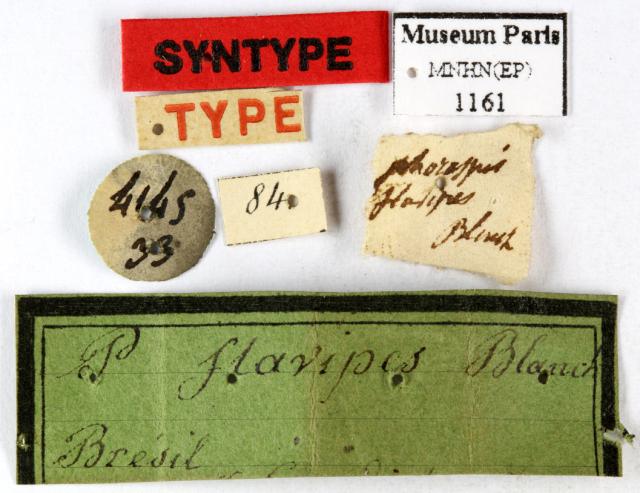 SYNTYPE
Museum Paris
MNHN(EP)
1161
TYPE
4145
33
84
phoraspis
flavipes
Blanch
P flavipes Blanch
Brésil